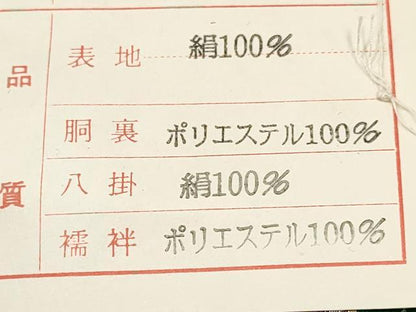 品質
表地 絹100%
胴裏 ポリエステル100%
八掛 絹100%
襦袢 ポリエステル100%